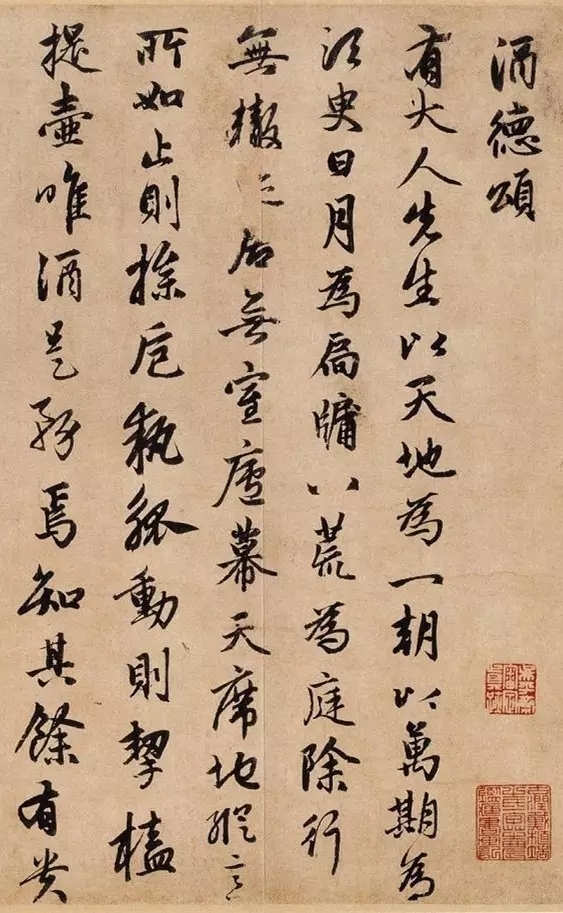 酒德頌
有大人先生以天地為一朝以萬期為
須臾日月為扃牖八荒為庭除行
無轍迹居無室廬幕天席地縱意
所如止則操卮執觚動則挈榼
提壺唯酒是務焉知其餘有貴